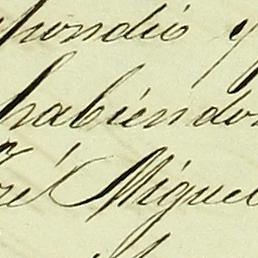 pundió y
habiéndo
sé Miguel